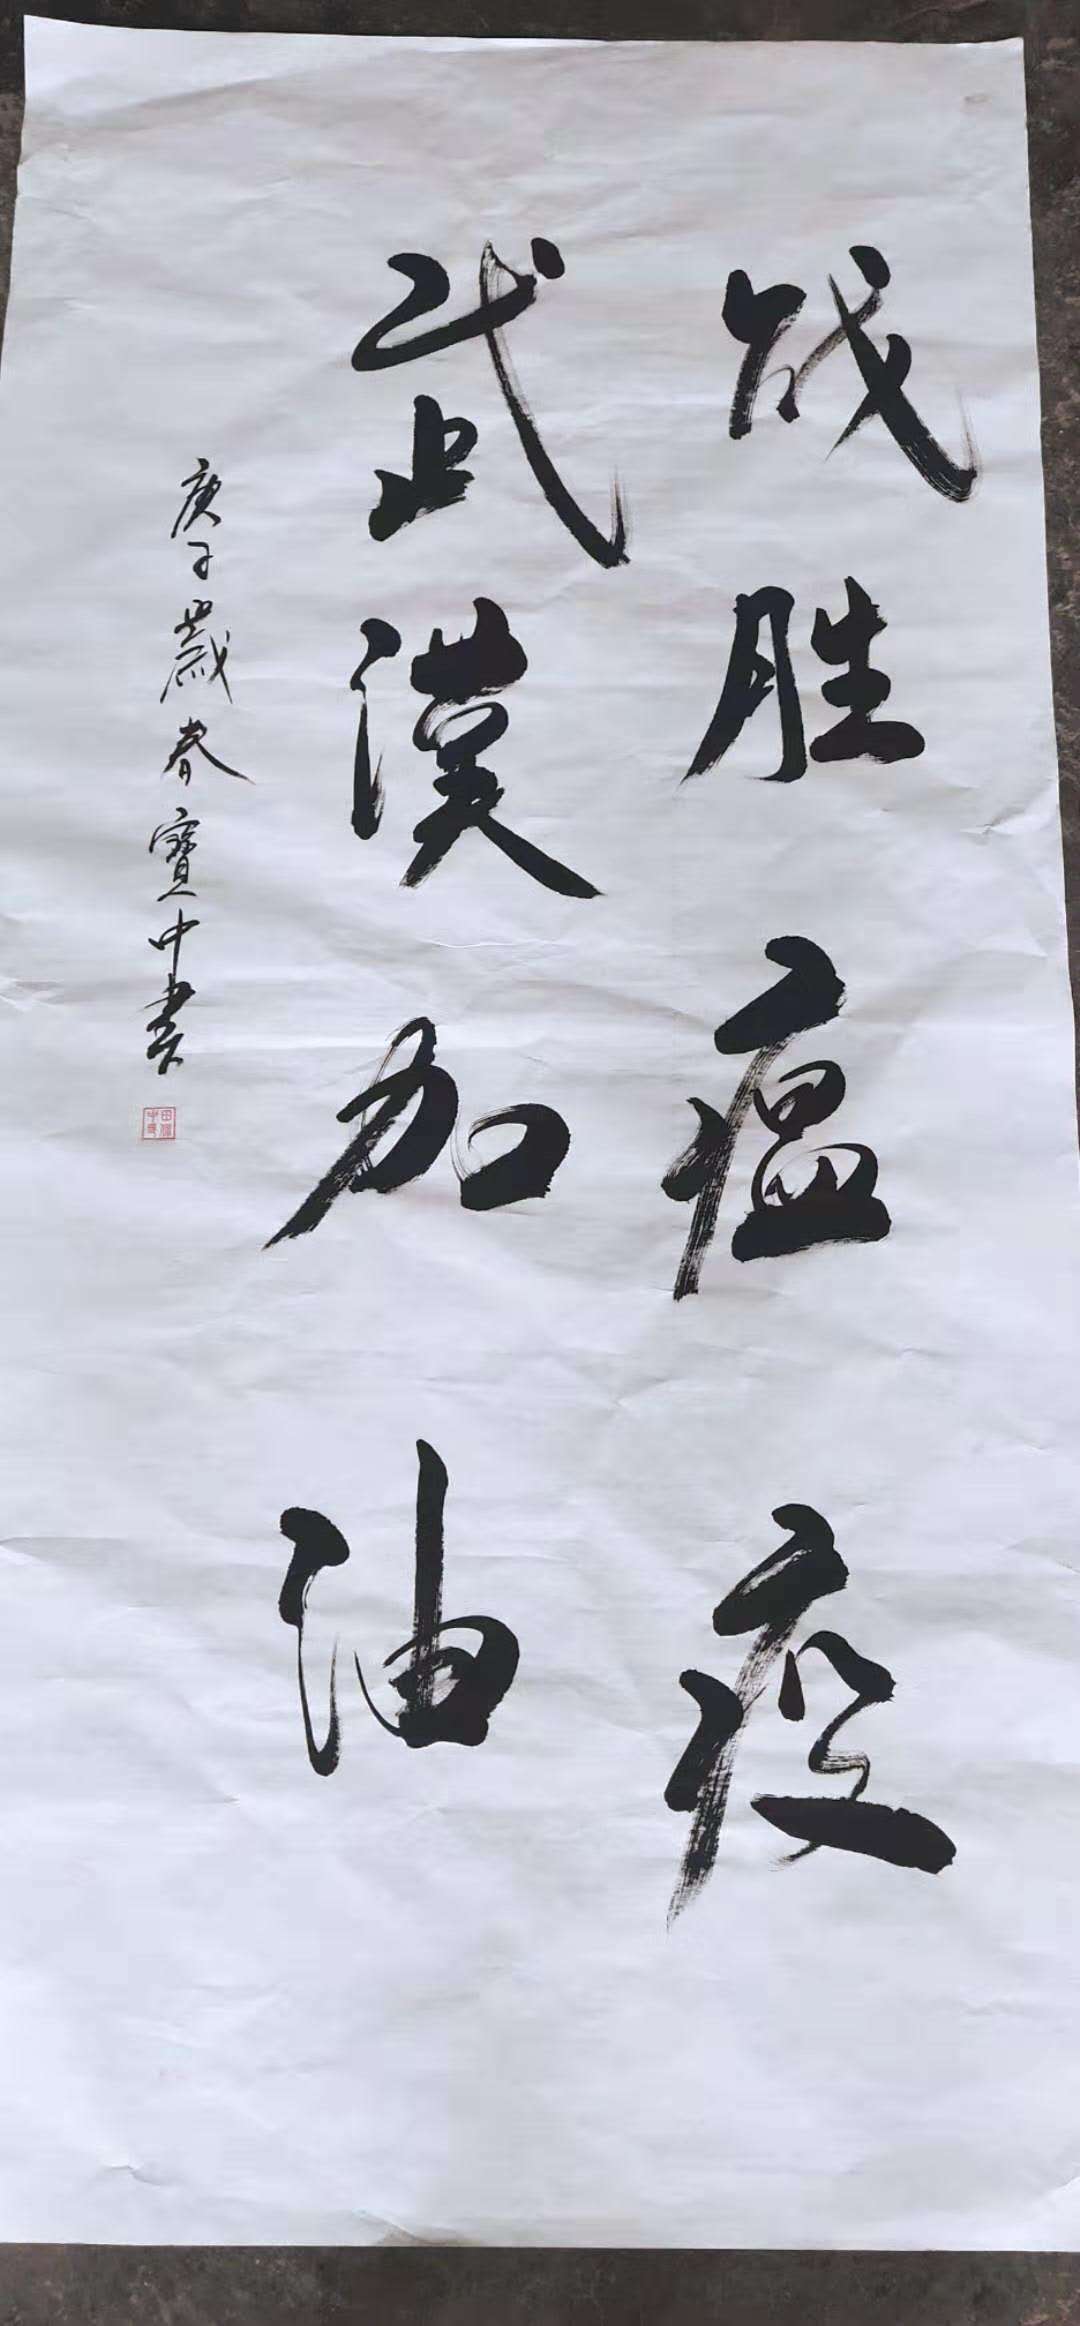 战胜瘟疫
武漢加油
庚子歲春寶中書